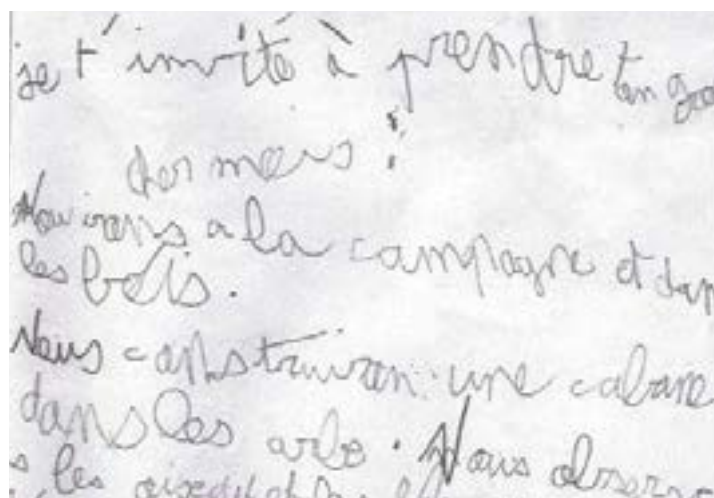 je t'invité à prendre ton goû
cher meus !
Nou irons a la campagne et dan
les bois.
Nous constriuron une cabane
dans les arbs. Nous observ
s les oiseau et